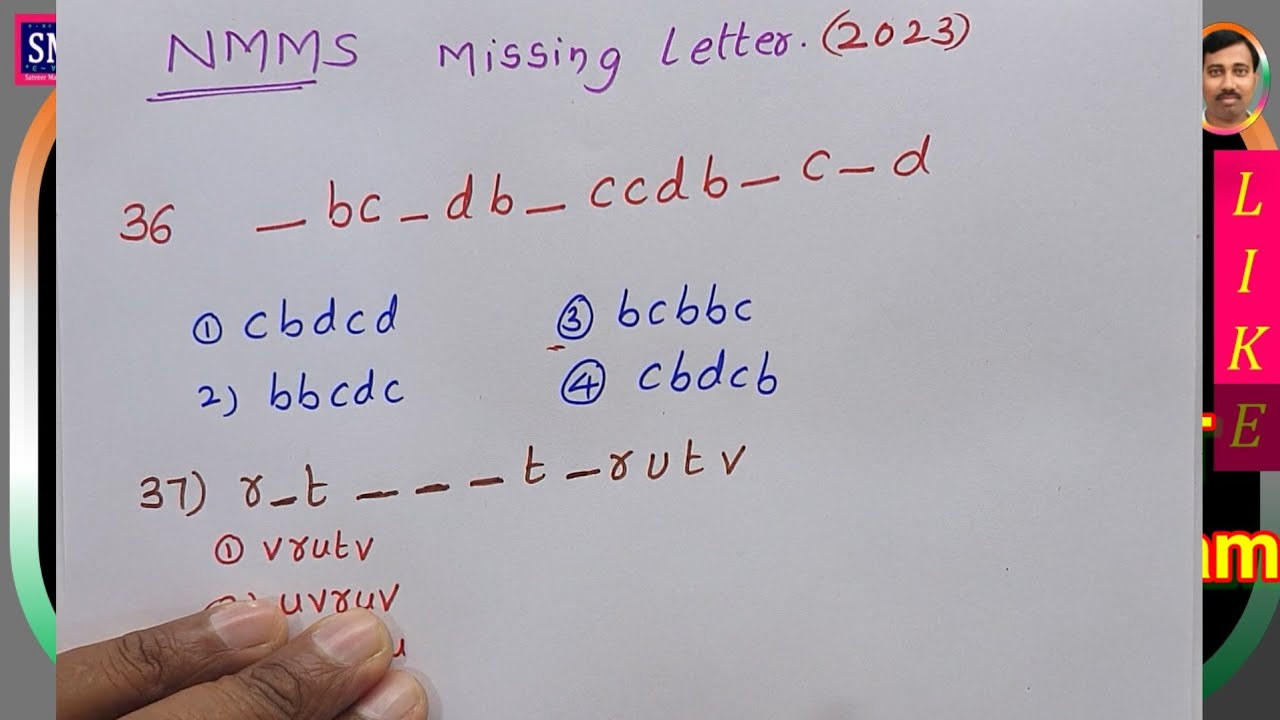 SM
NMMS Missing Letter. (2023)
36 _ bc _ db _ ccdb _ c _ d
① cbdcd ③ bcbbc
2) bbcdc ④ cbdcb
37) r _ t _ _ _ t _ r u t v
① vrutv
uvruv
u
L
I
K
E
am